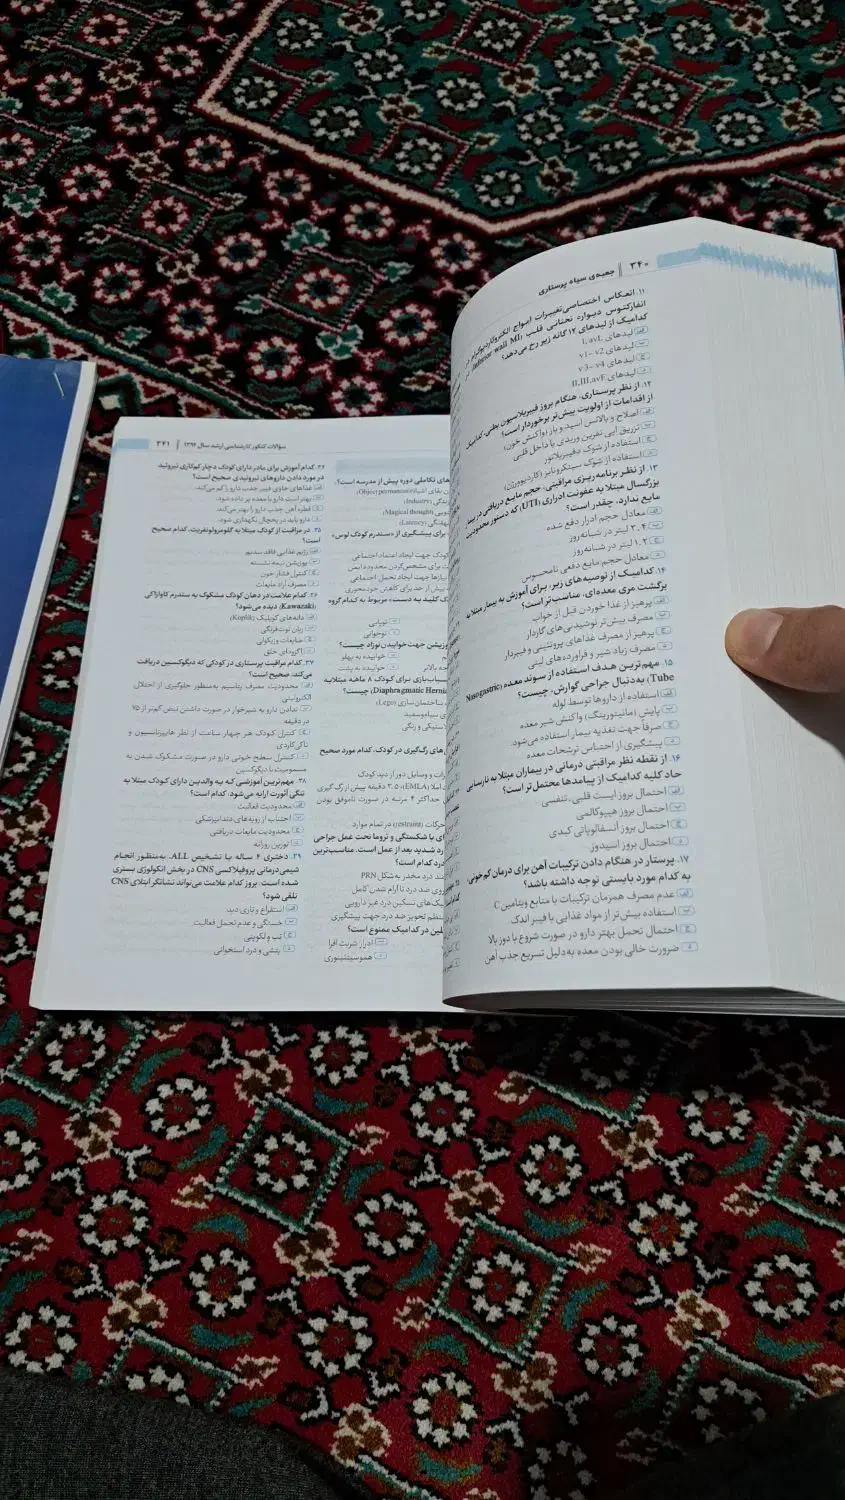 ۳۴۰ جعبه‌ی سیاه پرستاری
۱۱. انعکاس اختصاصی تغییرات امواج الکتروکاردیوگرام در
انفارکتوس دیواره تحتانی قلب (Inferior wall MI) در
کدامیک از لیدهای ۱۲ گانه زیر رخ می‌دهد؟
الف لیدهای I, avL
ب لیدهای v۱- v۲
ج لیدهای v۳- v۴
د لیدهای II,III,avF
۱۲. از نظر پرستاری، هنگام بروز فیبریلاسیون بطنی، کدامیک
از اقدامات از اولویت بیش‌تر برخوردار است؟
الف اصلاح و بالانس اسید و باز (واکنش خون)
ب تزریق اپی نفرین وریدی یا داخل قلبی
ج استفاده از شوک دفیبریلاتور
د استفاده از شوک سینکرونایز (کاردیوورژن)
۱۳. از نظر برنامه‌ریزی مراقبتی، حجم مایع دریافتی در بیمار
بزرگسال مبتلا به عفونت ادراری (UTI) که دستور محدودیت
مایع ندارد، چقدر است؟
الف معادل حجم ادرار دفع شده
ب ۳.۴ لیتر در شبانه‌روز
ج ۱.۲ لیتر در شبانه‌روز
د معادل حجم مایع دفعی نامحسوس
۱۴. کدامیک از توصیه‌های زیر، برای آموزش به بیمار مبتلا به
برگشت مری معده‌ای، مناسب‌تر است؟
الف پرهیز از غذا خوردن قبل از خواب
ب مصرف بیش‌تر نوشیدنی‌های گازدار
ج پرهیز از مصرف غذاهای پروتئینی و فیبردار
د مصرف زیاد شیر و فراورده‌های لبنی
۱۵. مهم‌ترین هدف استفاده از سوند معده (Nasogastric
Tube) به‌دنبال جراحی گوارش، چیست؟
الف استفاده از داروها توسط لوله
ب پایش (مانیتورینگ) واکنش شیر معده
ج صرفاً جهت تغذیه بیمار استفاده می‌شود.
د پیشگیری از احتباس ترشحات معده
۱۶. از نقطه نظر مراقبتی درمانی در بیماران مبتلا به نارسایی
حاد کلیه کدامیک از پیامدها محتمل‌تر است؟
الف احتمال بروز ایست قلبی ـ تنفسی
ب احتمال بروز هیپوکالمی
ج احتمال بروز آنسفالوپاتی کبدی
د احتمال بروز اسیدوز
۱۷. پرستار در هنگام دادن ترکیبات آهن برای درمان کم‌خونی،
به کدام مورد بایستی توجه داشته باشد؟
الف عدم مصرف همزمان ترکیبات با منابع ویتامین C
ب استفاده بیش‌تر از مواد غذایی با فیبر اندک
ج احتمال تحمل بهتر دارو در صورت شروع با دوز بالا
د ضرورت خالی بودن معده به‌دلیل تسریع جذب آهن
سؤالات کنکور کارشناسی ارشد سال ۱۳۹۴ ۳۴۱
های تکاملی دوره پیش از مدرسه است؟
(Object permanence)
(Industry)
(Magical thought)
(Latency)
برای پیشگیری از «سندرم کودک لوس»
کودک جهت ایجاد اعتماد اجتماعی
برای مشخص‌کردن محدوده ایمن
نیازها جهت ایجاد تحمل اجتماعی
بیش از حد برای کاهش خودمحوری
کلید به دست» مربوط به کدام گروه
ب نوپایی
د نوجوانی
پوزیشن جهت خوابیدن نوزاد چیست؟
ب خوابیده به پهلو
بالاتر د خوابیده به پشت
اسباب‌بازی برای کودک ۸ ماهه مبتلا به
(Diaphragmatic Hernia) چیست؟
ساختمان‌سازی (Lego)
سیاه و سفید
پلاستیکی و رنگی
های رگ‌گیری در کودک، کدام مورد صحیح
و وسایل دور از دید کودک
(EMLA) ۳.۵ دقیقه پیش از رگ گیری
حداکثر ۴ مرتبه در صورت ناموفق بودن
حرکات (restraint) در تمام موارد
با شکستگی و تروما تحت عمل جراحی
درد شدید بعد از عمل است. مناسب‌ترین
درد کدام است؟
ضد درد مخدر به‌شکل PRN
ضد درد تا آرام شدن کامل
تسکین درد غیر دارویی
منظم تجویز ضد درد جهت پیشگیری
در کدامیک ممنوع است؟
ب ادرار شربت افرا
د هموسیستینوری
۳۴. کدام آموزش برای مادر دارای کودک دچار کم‌کاری تیروئید
در مورد دادن داروهای تیروئیدی صحیح است؟
الف غذاهای حاوی فیبر جذب دارو را کم می‌کند.
ب بهتر است دارو با معده پر داده شود.
ج قطره آهن جذب دارو را بهتر می‌کند.
د دارو باید در یخچال نگهداری شود.
۳۵. در مراقبت از کودک مبتلا به گلومرولونفریت، کدام صحیح
است؟
الف رژیم غذایی فاقد سدیم
ب پوزیشن نیمه نشسته
ج کنترل فشار خون
د مصرف آزاد مایعات
۳۶. کدام علامت در دهان کودک مشکوک به سندرم کاوازاکی
(Kawazaki) دیده می‌شود؟
الف دانه‌های کوپلیک (Koplik)
ب زبان توت‌فرنگی
ج ضایعات وزیکولی
د اگزودای حلق
۳۷. کدام مراقبت پرستاری در کودکی که دیگوکسین دریافت
می‌کند، صحیح است؟
الف محدودیت مصرف پتاسیم به‌منظور جلوگیری از اختلال
الکترولیتی
ب ندادن دارو به شیرخوار در صورت داشتن نبض کم‌تر از ۷۵
در دقیقه
ج کنترل کودک هر چهار ساعت از نظر هایپرتانسیون و
تاکی‌کاردی
د کنترل سطح خونی دارو در صورت مشکوک شدن به
مسمومیت با دیگوکسین
۳۸. مهم‌ترین آموزشی که به والدین دارای کودک مبتلا به
تنگی آئورت ارایه می‌شود، کدام است؟
الف محدودیت فعالیت
ب اجتناب از رویه‌های دندانپزشکی
ج محدودیت مایعات دریافتی
د توزین روزانه
۳۹. دختری ۴ ساله با تشخیص ALL، به‌منظور انجام
شیمی‌درمانی پروفیلاکسی CNS در بخش انکولوژی بستری
شده است. بروز کدام علامت می‌تواند نشانگر ابتلای CNS
تلقی شود؟
الف استفراغ و تاری دید
ب خستگی و عدم تحمل فعالیت
ج تب و لکوپنی
د پتشی و درد استخوانی